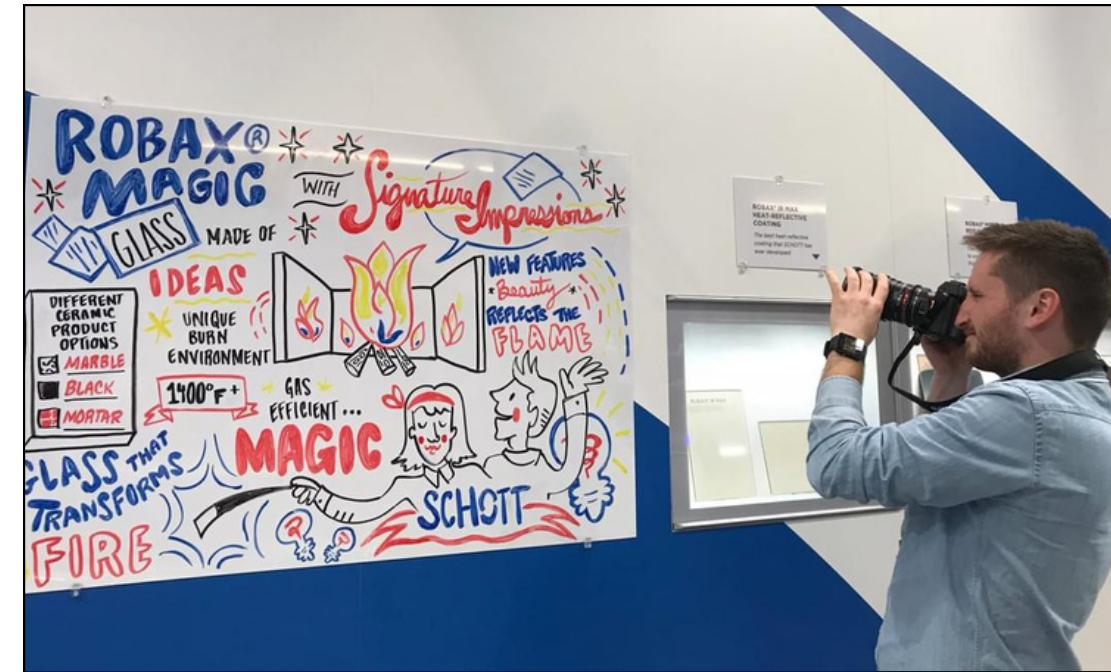 ROBAX®
MAGIC
WITH
Signature
Impressions
GLASS
MADE OF
IDEAS
DIFFERENT
CERAMIC
PRODUCT
OPTIONS
MARBLE
BLACK
MORTAR
UNIQUE
BURN
ENVIRONMENT
1400°F+
GAS
EFFICIENT...
MAGIC
NEW FEATURES
Beauty
REFLECTS THE
FLAME
GLASS THAT
TRANSFORMS
FIRE
SCHOTT
ROBAX® IR MAX
HEAT-REFLECTIVE
COATING
The best heat-reflective
coating that SCHOTT has
ever developed